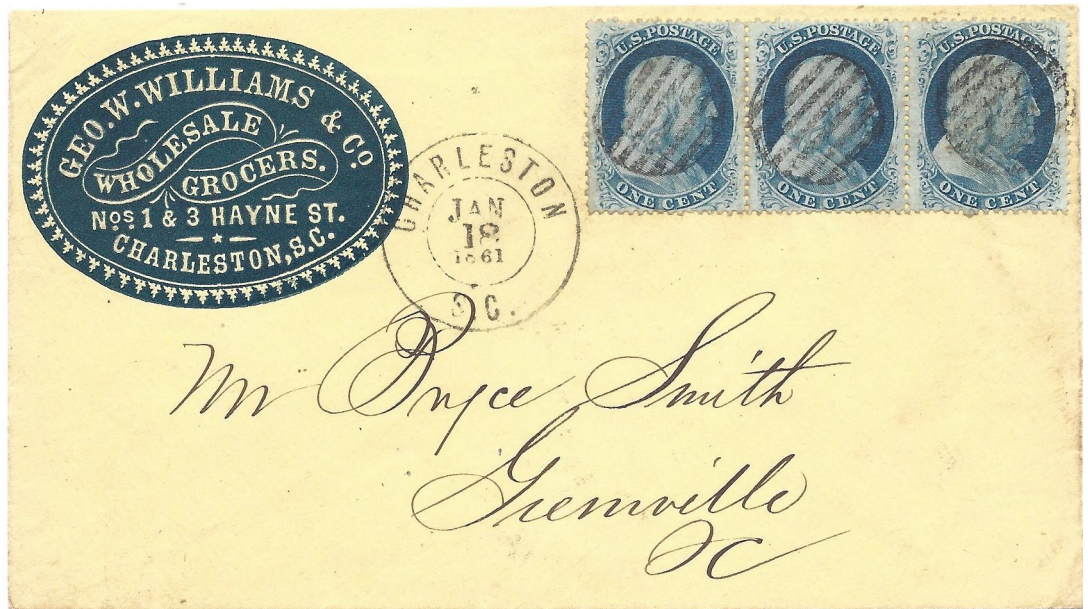 GEO. W. WILLIAMS & Co.
WHOLESALE
GROCERS.
Nos. 1 & 3 HAYNE ST.
CHARLESTON, S.C.
CHARLESTON
JAN
18
1861
S.C.
U.S. POSTAGE
ONE CENT
U.S. POSTAGE
ONE CENT
U.S. POSTAGE
ONE CENT
Mr Bryce Smith
Greenville
SC